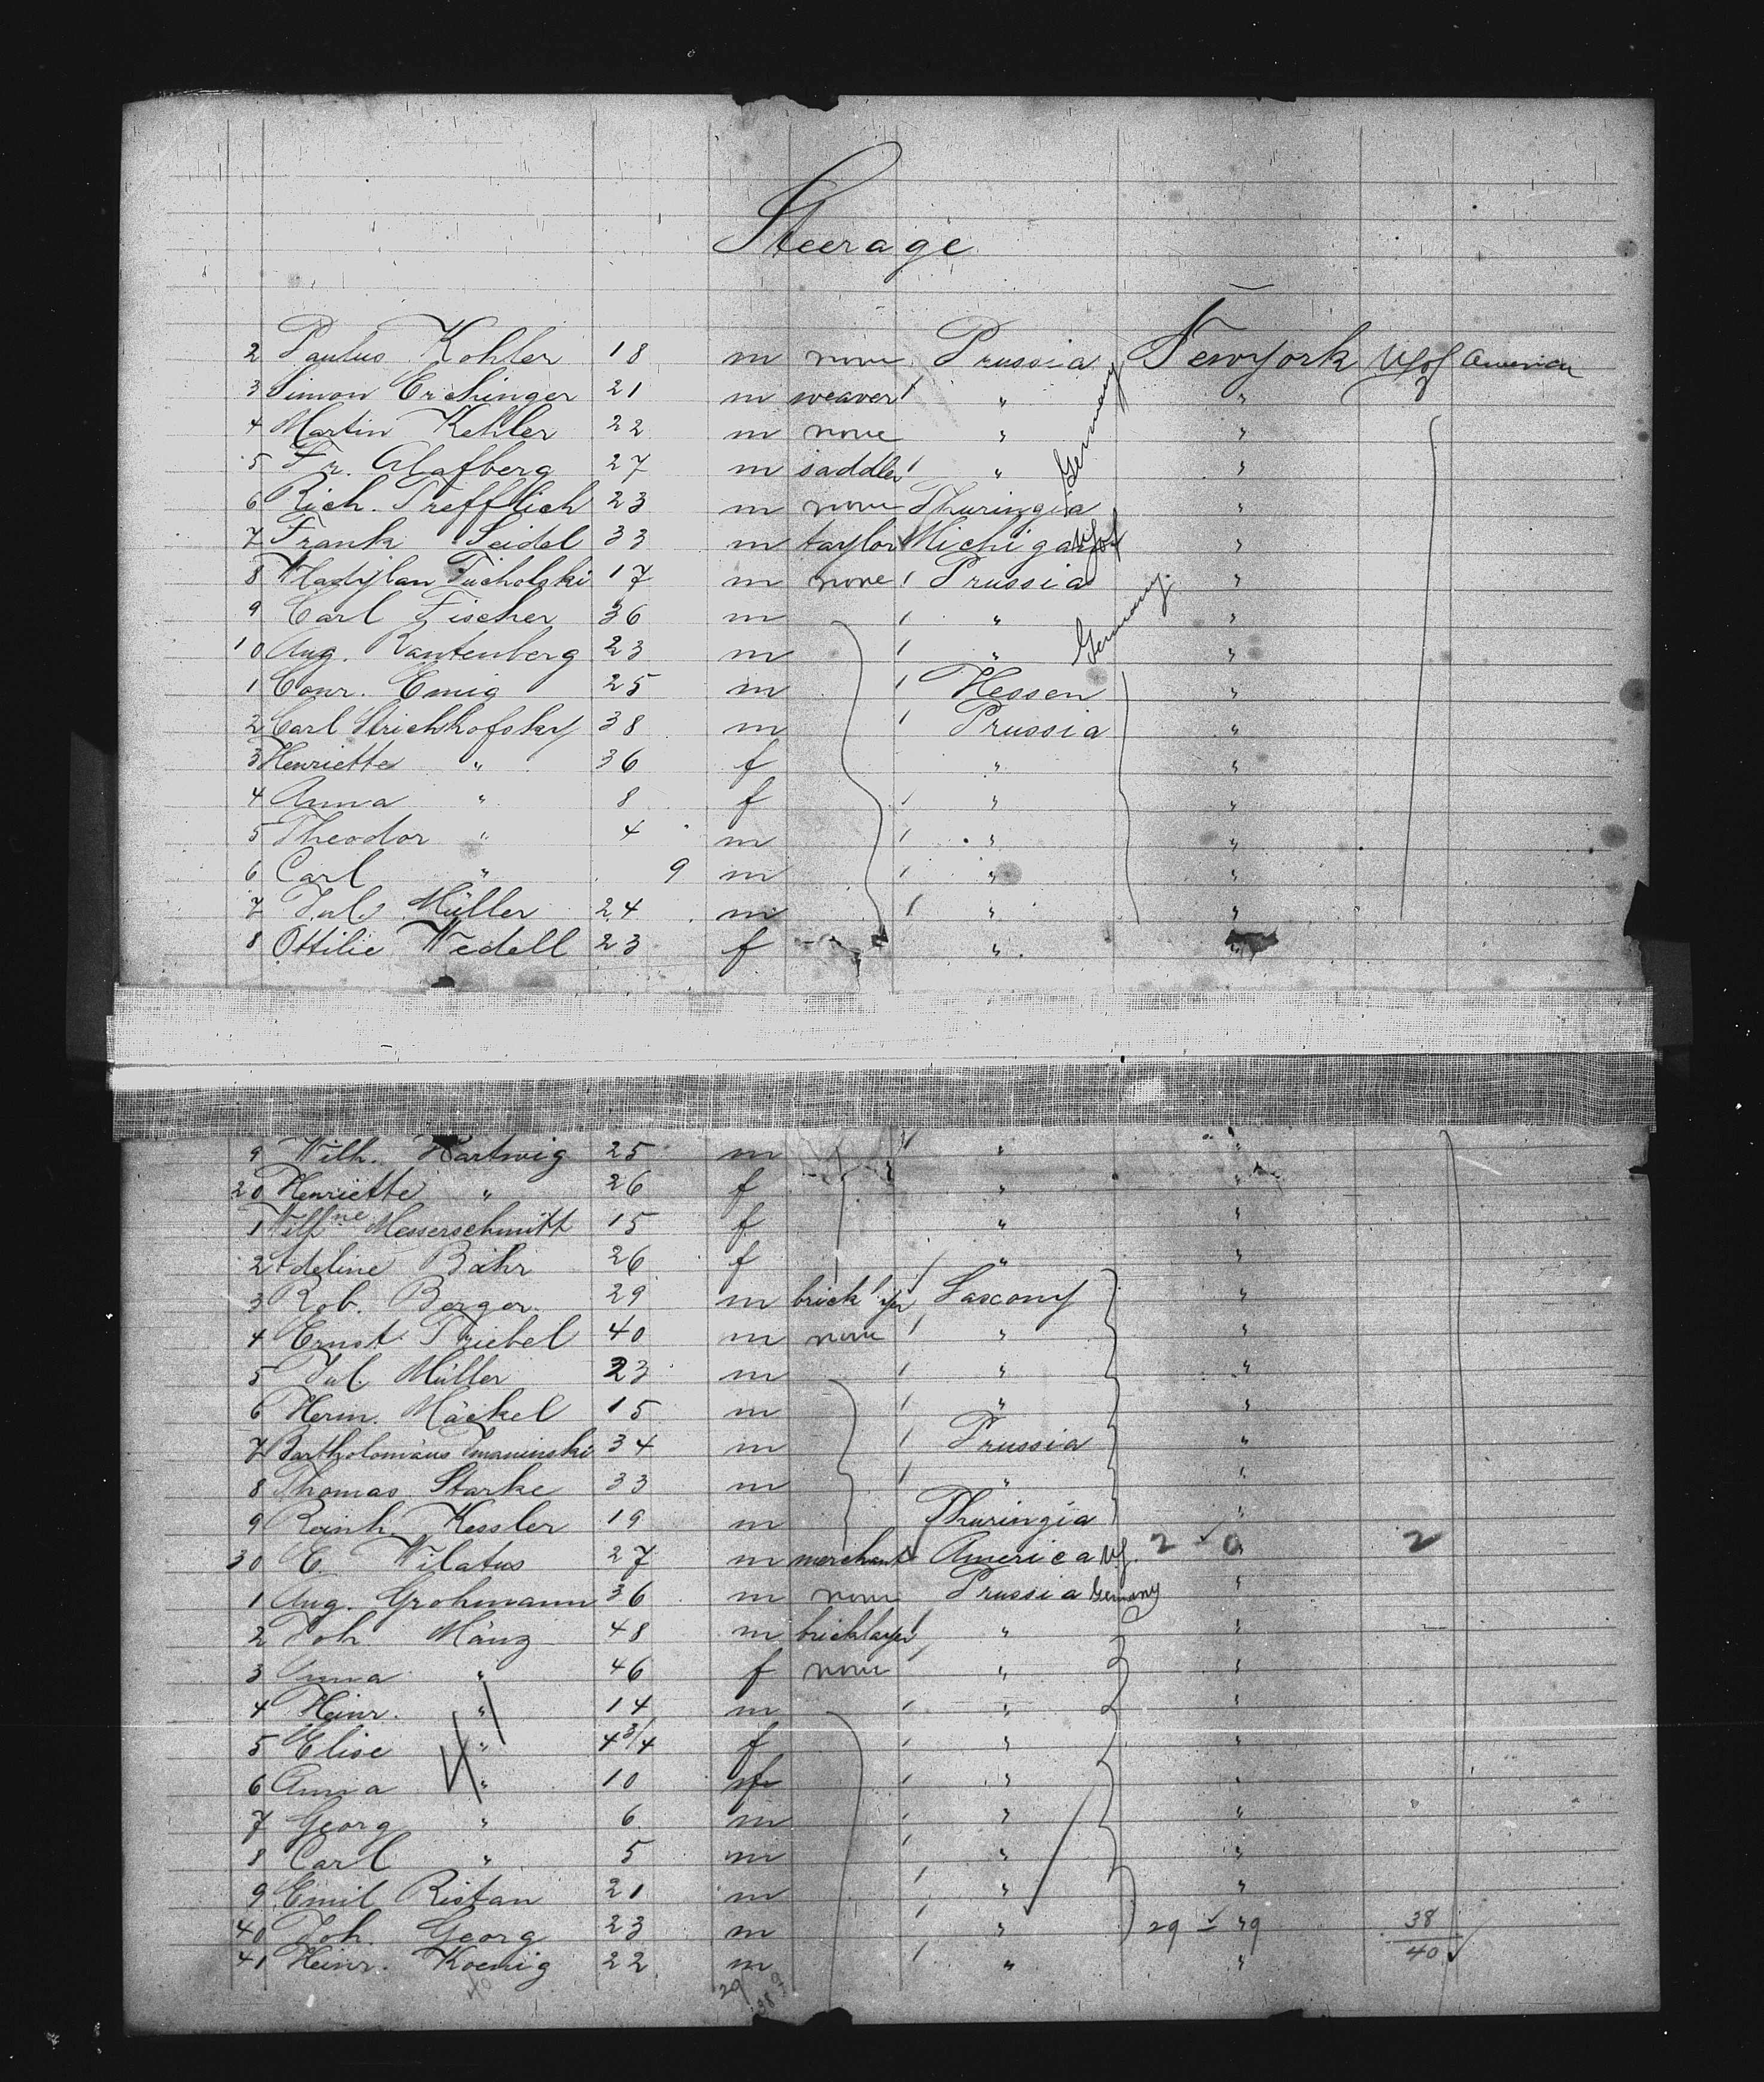 Steerage
2 Paulus Kohler 18 m none Prussia Newyork U S of America
3 Simon Erchinger 21 m weaver " "
4 Martin Kehler 22 m none " "
5 Fr. 27 m saddler " "
6 Rich. Trefflich 23 m none Thuringia "
Germany
7 Frank Seidel 33 m taylor Michigan "
8 Wladyslan Tucholski 17 m none Prussia "
9 Carl Fischer 36 m " "
10 Aug. Rantenberg 23 m " "
Germany
1 Conr. Emig 25 m Hessen "
2 Carl Strichhofsky 38 m Prussia "
3 Henriette " 36 f " "
4 Anna " 8 f " "
5 Theodor " 4 m " "
6 Carl " 9 m " "
7 Jul. Müller 24 m " "
8 Ottilie Wedell 23 f " "
9 Wilh. Hartwig 25 m " "
20 Henriette " 26 f " "
1 Messerschmitt 15 f " "
2 Adeline Bähr 26 f " "
3 Rob. Berger 29 m Saxony "
4 Ernst Triebel 40 m none " "
5 Jul. Müller 23 m " "
6 Herm. Mäckel 15 m " "
7 Bartholomäus 34 m Prussia "
8 Thomas Starke 33 m " "
9 Reinh. Kessler 19 m Thuringia "
30 E. Wilatus 27 m merchant America 2 0 2
1 Aug. Grohmann 36 m none Prussia Germany "
2 Joh. Mänz 48 m bricklayer " "
3 Anna " 46 f none " "
4 Heinr. " 14 m " "
5 Elise " 4 3/4 f " "
6 Anna " 10 f " "
7 Georg " 6 m " "
8 Carl " 5 m " "
9 Emil Ristan 21 m " "
40 Joh. Georg 23 m " 29 " 9 38
41 Heinr. Koenig 22 m " " 40
40 29 38